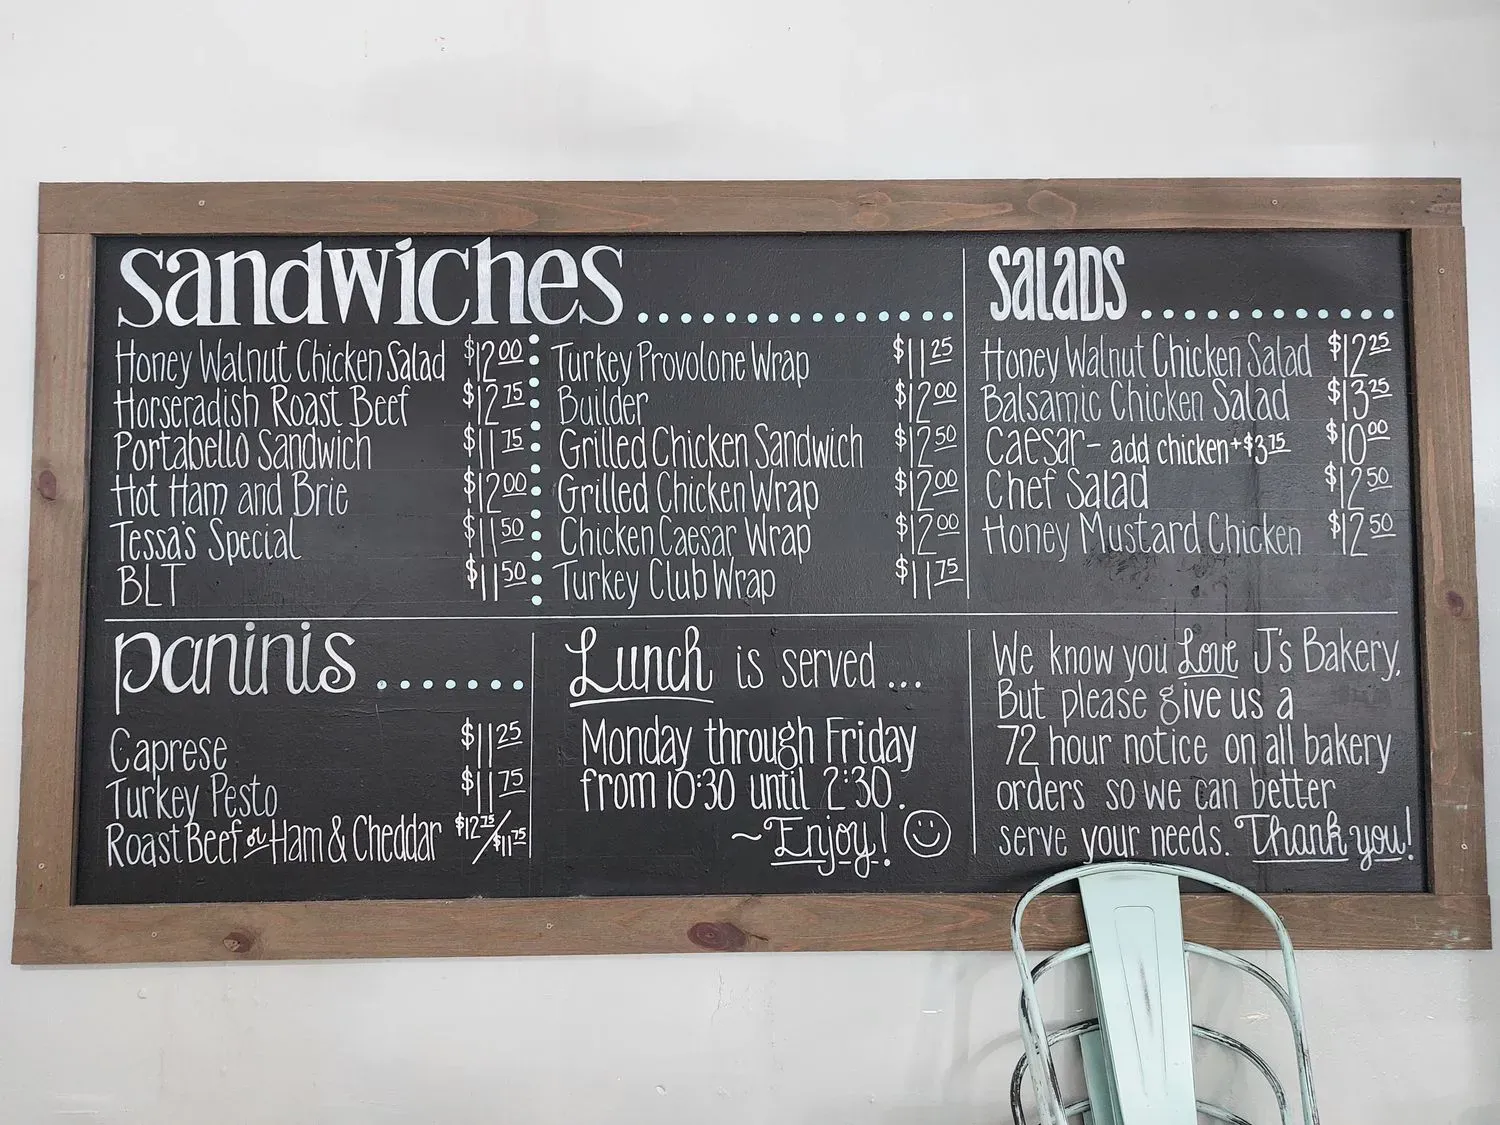 sandwiches
Honey Walnut Chicken Salad $12.00
Horseradish Roast Beef $12.75
Portabello Sandwich $11.75
Hot Ham and Brie $12.00
Tessa's Special $11.50
BLT $11.50
Turkey Provolone Wrap $11.25
Builder $12.00
Grilled Chicken Sandwich $12.50
Grilled Chicken Wrap $12.00
Chicken Caesar Wrap $12.00
Turkey Club Wrap $11.75
SALADS
Honey Walnut Chicken Salad $12.25
Balsamic Chicken Salad $13.25
Caesar - add chicken +$3.75 $10.00
Chef Salad $12.50
Honey Mustard Chicken $12.50
paninis
Caprese $11.25
Turkey Pesto $11.75
Roast Beef or Ham & Cheddar $12.75/$11.75
Lunch is served...
Monday through Friday
from 10:30 until 2:30.
~Enjoy!
We know you Love J's Bakery,
But please give us a
72 hour notice on all bakery
orders so we can better
serve your needs. Thank you!